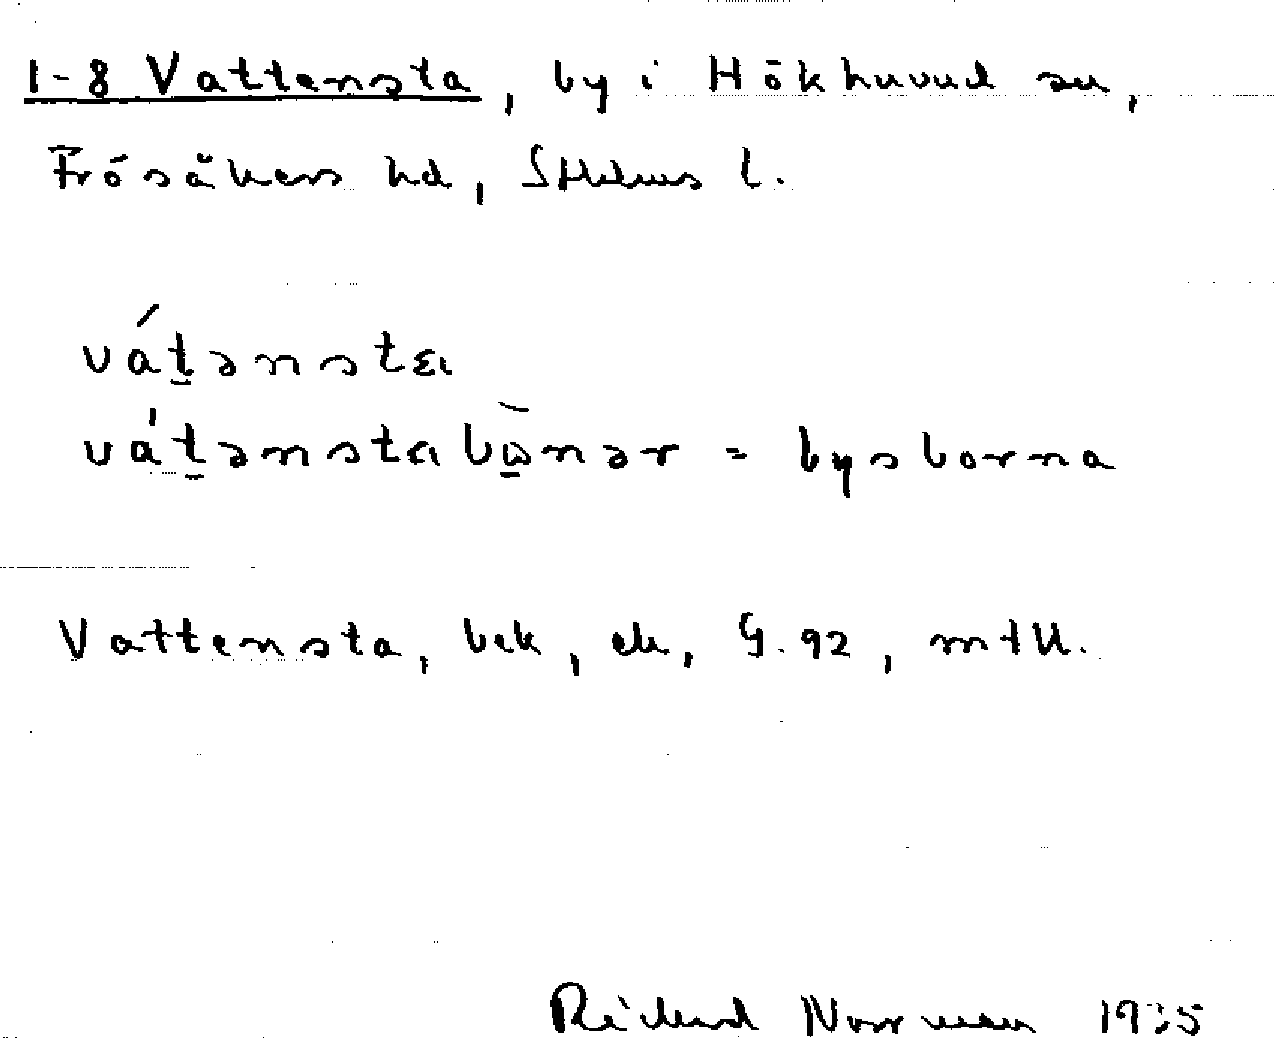 1-8 Vattensta, by i Hökhuvud sn,
Frösåkers hd, Sthlms l.
vát̠ənsta
vát̠ənstabὼ̠nər = bysborna
Vattensta, bek, ek, G. 92, mtll.
Rickard Norrman 1935